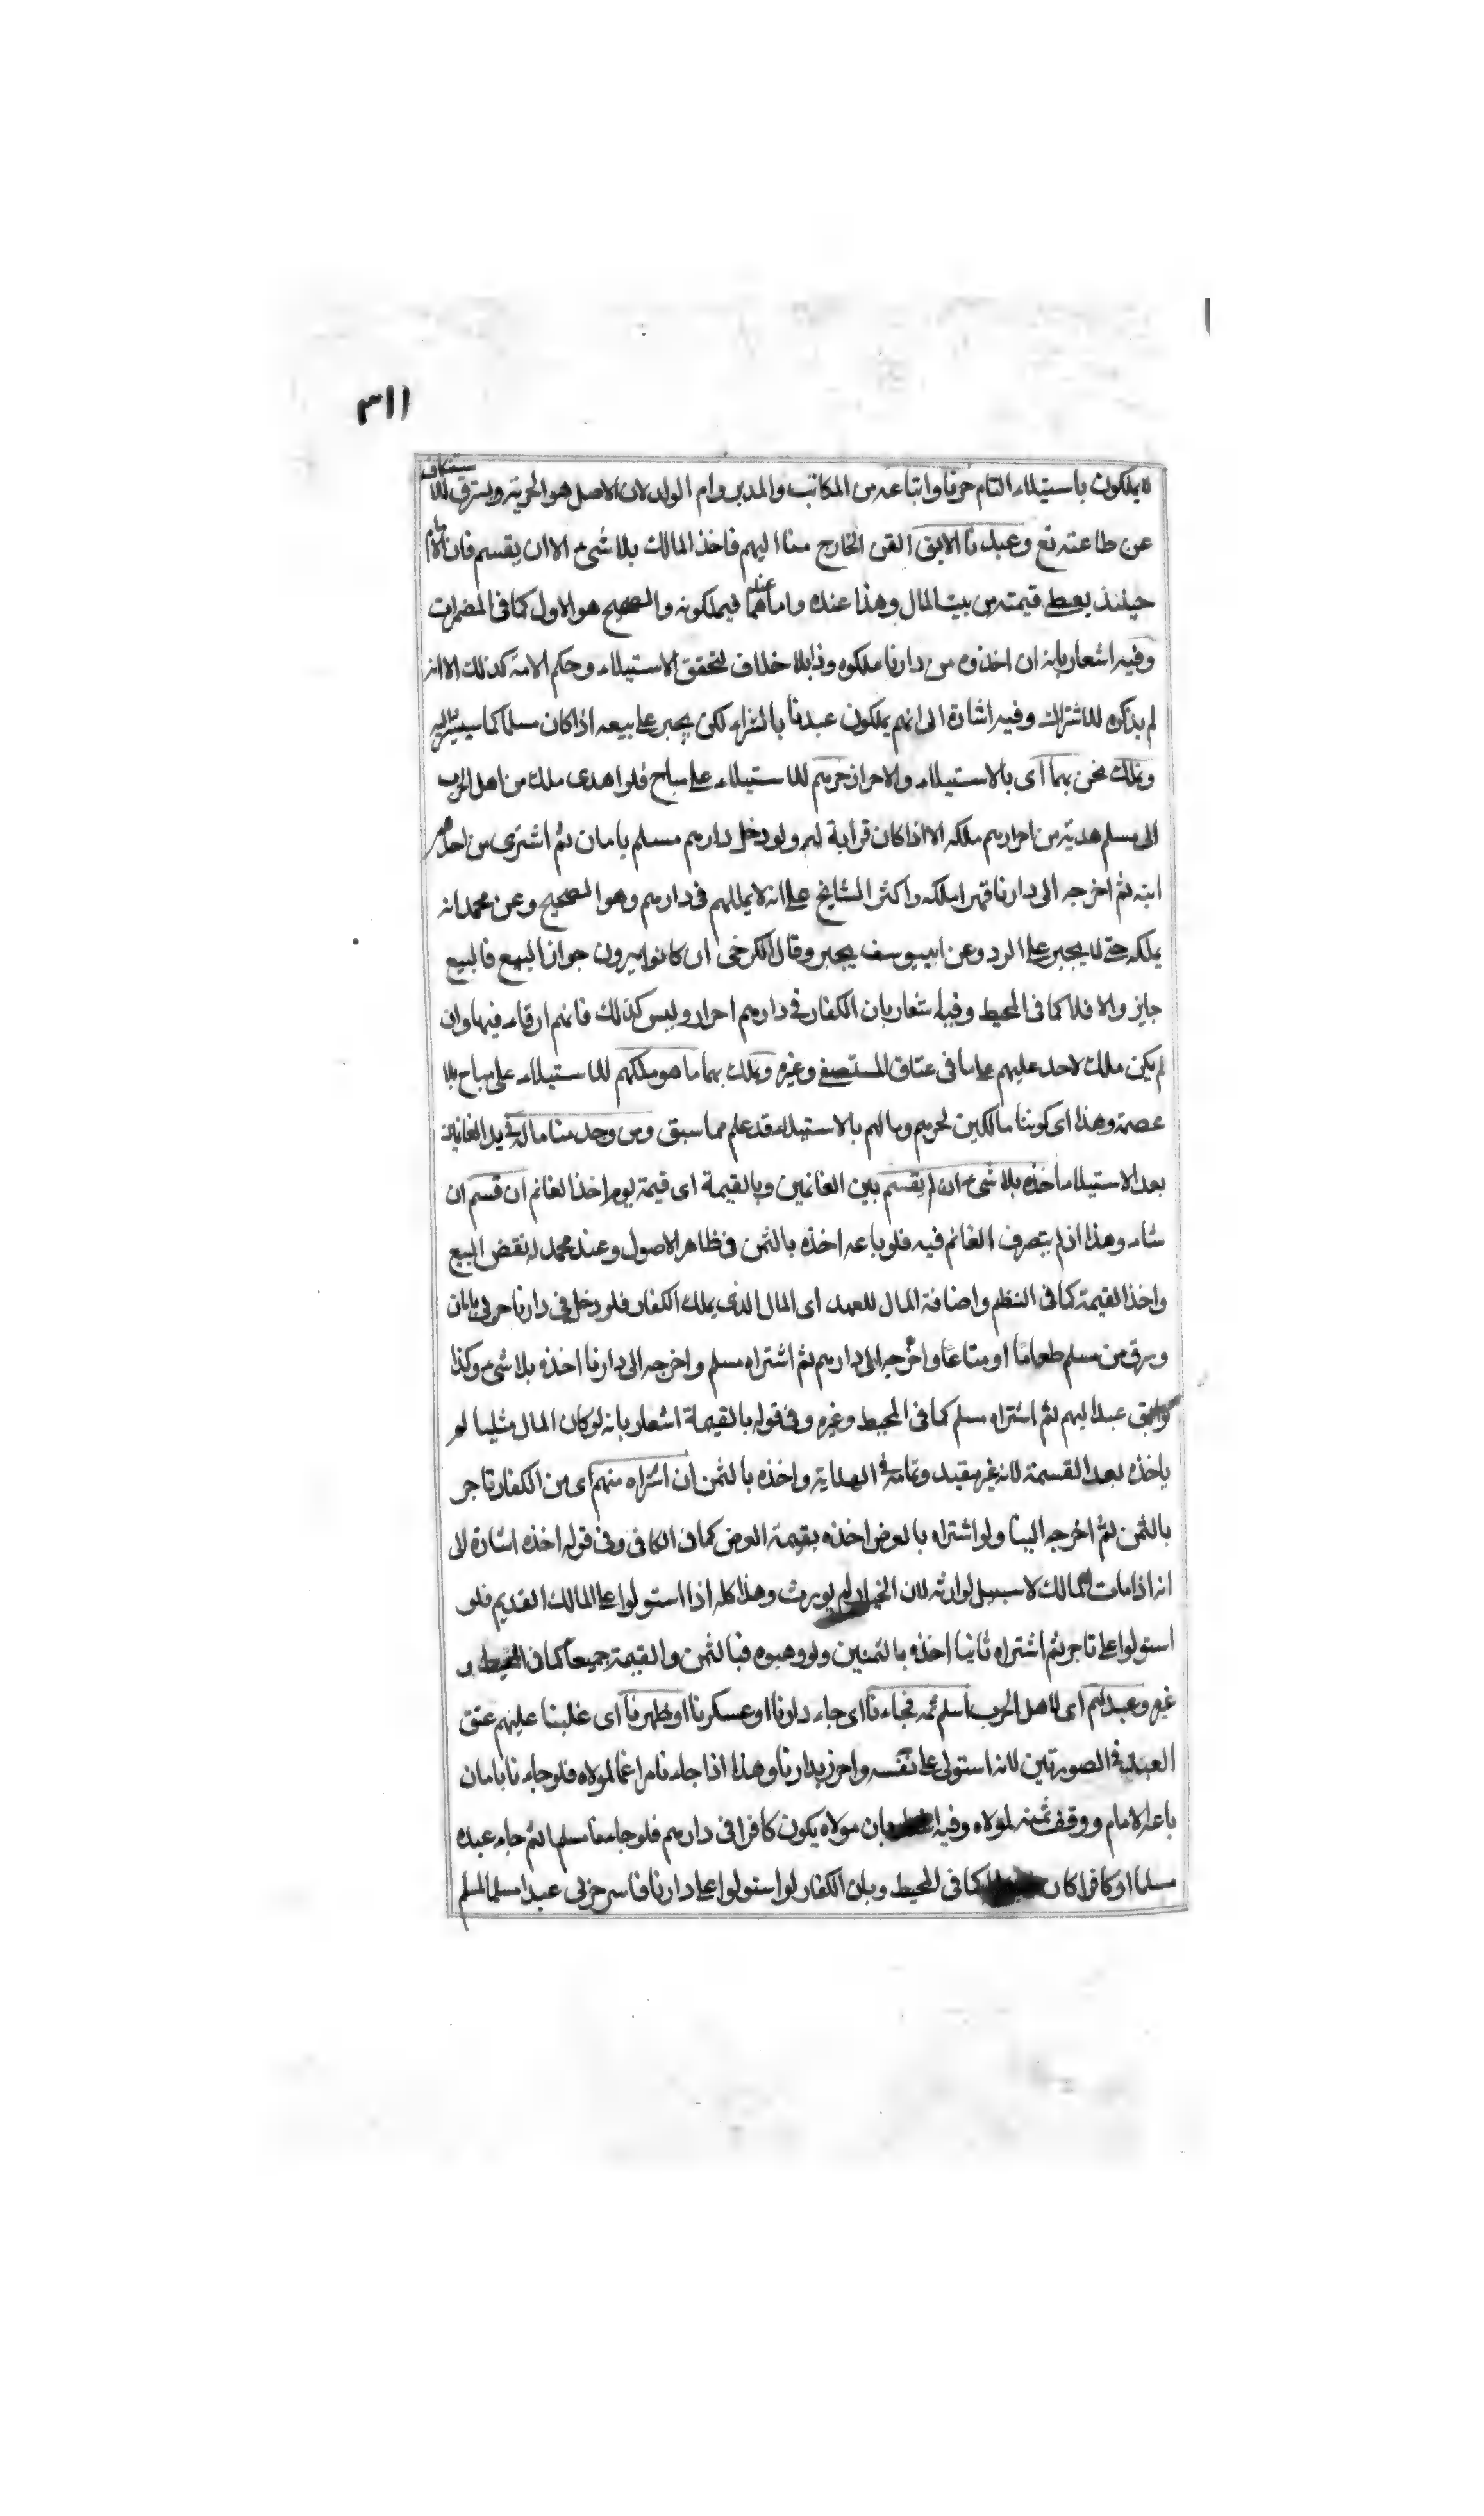 ٣١١
لا يملكون باستيلاء التام حرنا واتباعه من المكاتب والمدبر وام الولد لان الاصل هو الحرية ويسترق للاستنكاف
عن طاعته تع وعبدنا الابق القن الخارج منا اليهم فاخذ المالك بلا شئ الا ان يقسم فان الامام
حينئذ يعط قيمته من بيت المال وهذا عنده واما عندهما فيملكونه والصحيح هو الاول كما فى المضمرات
وفيه اشعار بانه ان اخذوه من دارنا ملكوه وذا بلا خلاف لتحقق الاستيلاء وحكم الامة كذلك الا انه
لم يذكره للاشتراك وفيه اشارة الى انهم يملكون عبدنا بالشراء لكن يجبر على بيعه اذا كان مسلما كما سيشير اليه
ونملك نحن بهما اى بالاستيلاء والاحراز حرهم للاستيلاء على مباح فلو اهدى ملك من اهل الحرب
الى مسلم هدية من احرارهم ملكه الا اذا كان قرابة لهم ولو دخل دارهم مسلم بامان ثم اشترى من احدهم
ابنه ثم اخرجه الى دارنا قهرا ملكه واكثر المشايخ على انه لا يملكهم فى دارهم وهو الصحيح وعن محمد انه
يملكه حتى لا يجبر على الرد وعن ابى يوسف يجبر وقال الكرخى ان كانوا يرون جواز البيع فالبيع
جايز والا فلا كما فى المحيط وفيه اشعار بان الكفار فى دارهم احرار وليس كذلك فانهم ارقاء فيها وان
لم يكن ملك لاحد عليهم على ما فى عتاق المستصفى وغيره ونملك بهما ما هو ملكهم للاستيلاء على مباح بلا
عصمة وهذا اى كوننا مالكين لحرهم ومالهم بالاستيلاء قد علم مما سبق ومن وجد منا ماله فى يد الغانمين
بعد الاستيلاء اخذه بلا شئ ان لم يقسم بين الغانمين وبالقيمة اى قيمة يوم اخذ الغانم ان قسم ان
شاء وهذا ان لم يتصرف الغانم فيه فلو باعه اخذه بالثمن فى ظاهر الاصول وعند محمد له نقض البيع
واخذ القيمة كما فى النظم واضافة المال للعهد اى المال الذى يملك الكفار فلو دخل فى دارنا حربى بامان
وسرق من مسلم طعاما او متاعا واخرجه الى دارهم ثم اشتراه مسلم واخرجه الى دارنا اخذه بلا شئ وكذا
لو ابق عبد اليهم ثم اشتراه مسلم كما فى المحيط وغيره وفى قوله بالقيمة اشعار بانه لو كان المال مثليا لم
ياخذه بعد القسمة لانه غير مقيد وتمامه فى الهداية واخذه بالثمن ان اشتراه منهم اى من الكفار تاجر
بالثمن ثم اخرجه الينا ولو اشتراه بالعرض اخذه بقيمة العرض كما فى الكافى وفى قوله اخذه اشارة الى
انه اذا مات المالك لا سبيل لوارثه لان الخيار لم يورث وهذا كله اذا استولوا على المالك القديم فلو
استولوا على تاجر ثم اشتراه ثانيا اخذه بالثمنين ولو وهبوه فبالثمن والقيمة جميعا كما فى المحيط و
غيره وعبد لهم اى لاهل الحرب اسلم ثمه فجاءنا اى جاء دارنا او عسكرنا او ظهرنا اى غلبنا عليهم عتق
العبد فى الصورتين لانه استولى على نفسه واحرز بدارنا وهذا اذا جاءنا مراغما لمولاه فلو جاءنا بامان
باعه الامام ووقف ثمنه لمولاه وفيه بان مولاه يكون كافرا فى دارهم فلو جاءنا مسلما ثم جاء عبده
مسلما او كافرا كان كما فى المحيط وبان الكفار لو استولوا على دارنا فاسر حربى عبدا مسلما لمسلم